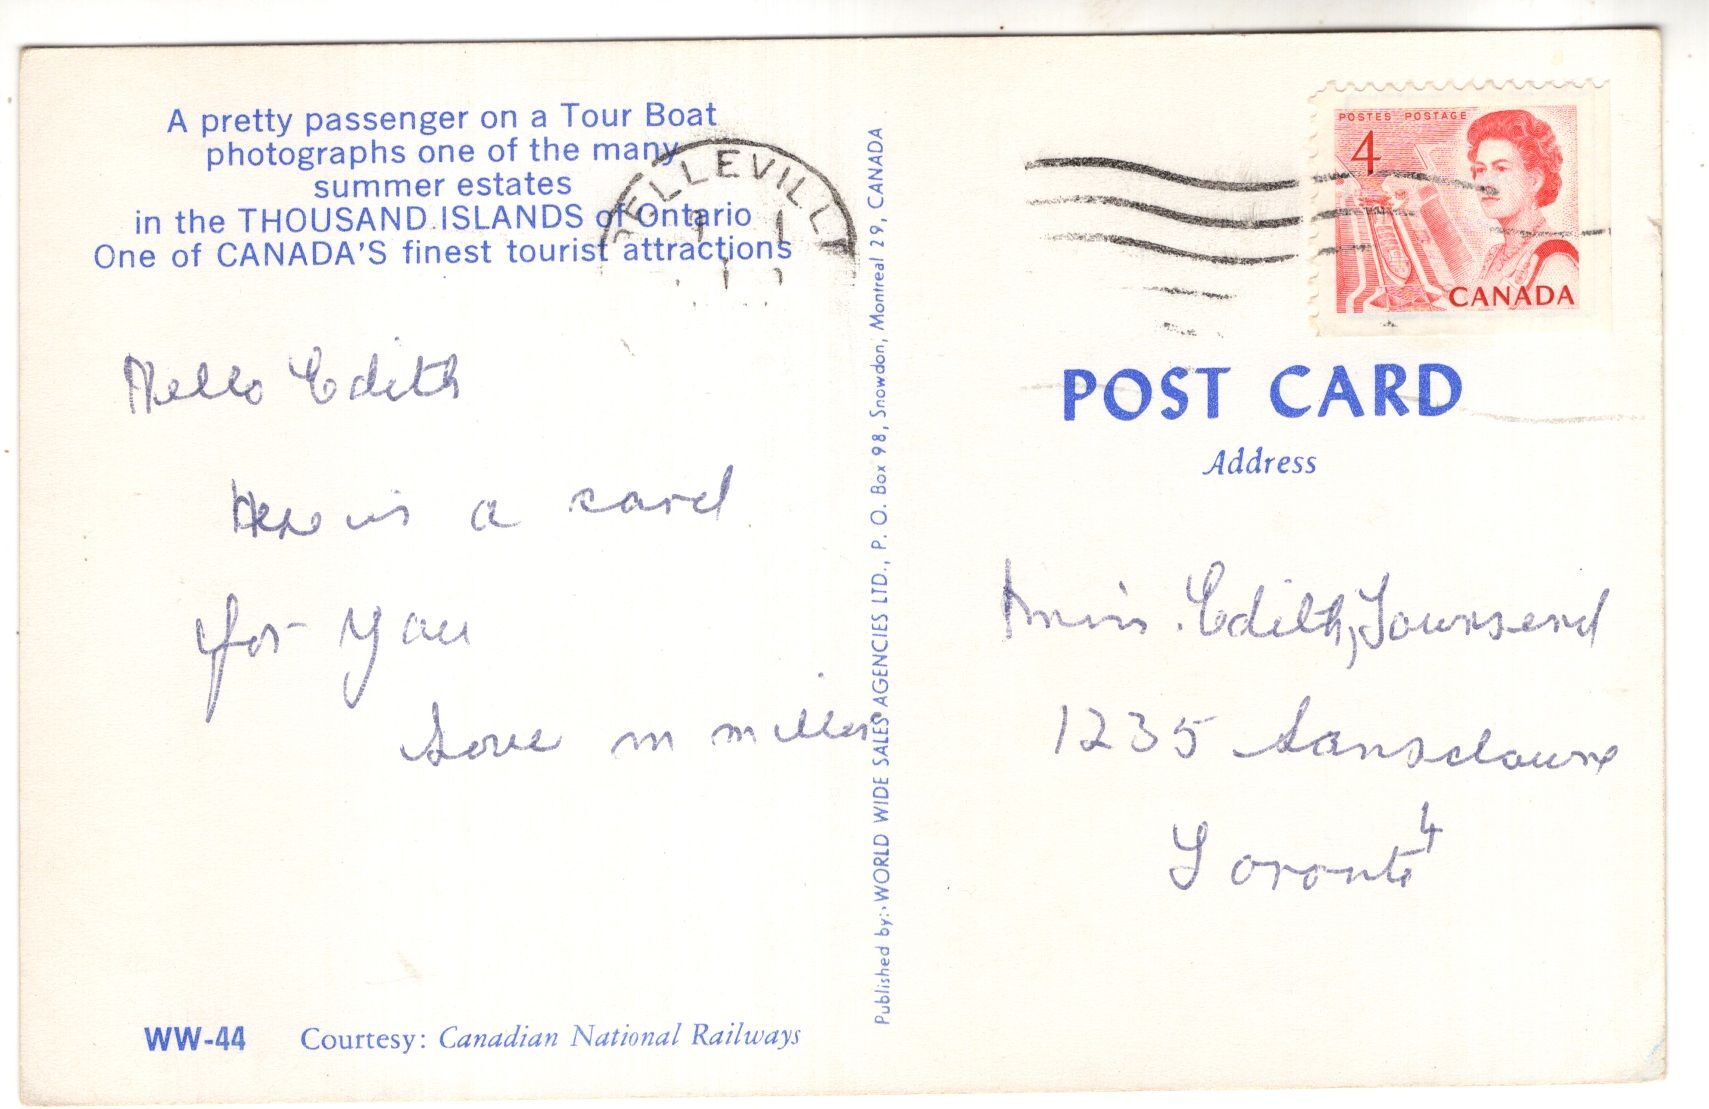 A pretty passenger on a Tour Boat
photographs one of the many
summer estates
in the THOUSAND ISLANDS of Ontario
One of CANADA'S finest tourist attractions
Hello Edith
Here is a card
for you
Love m miller
WW-44 Courtesy: Canadian National Railways
Published by:- WORLD WIDE SALES AGENCIES LTD., P. O. Box 98, Snowdon, Montreal 29, CANADA
ELLEVILL
POSTES POSTAGE
4
CANADA
POST CARD
Address
Miss. Edith, Townsend
1235 Lansdowne
Toronto 4